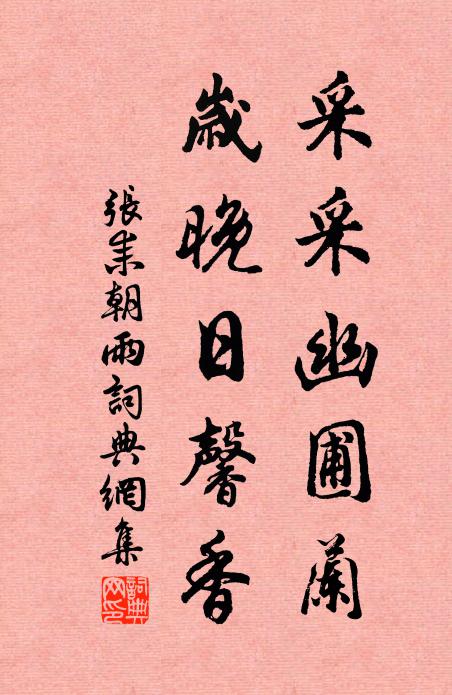 采采幽圃蘭
歲晚日馨香
張耒朝雨詞典網集
詞典
网印